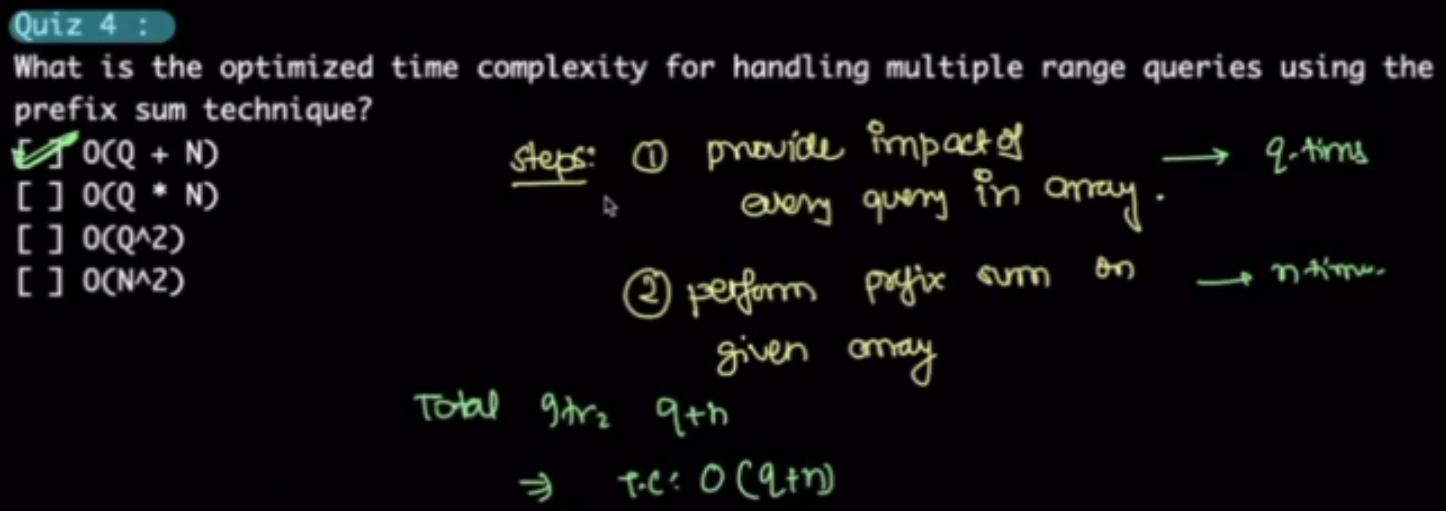 Quiz 4 :
What is the optimized time complexity for handling multiple range queries using the
prefix sum technique?
[ ] O(Q + N)
[ ] O(Q * N)
[ ] O(Q^2)
[ ] O(N^2)
steps: ① provide impact of → q-tims
every query in array.
② perform prefix sum on → n-time.
given array
Total q+n
⇒ T.C: O(q+n)